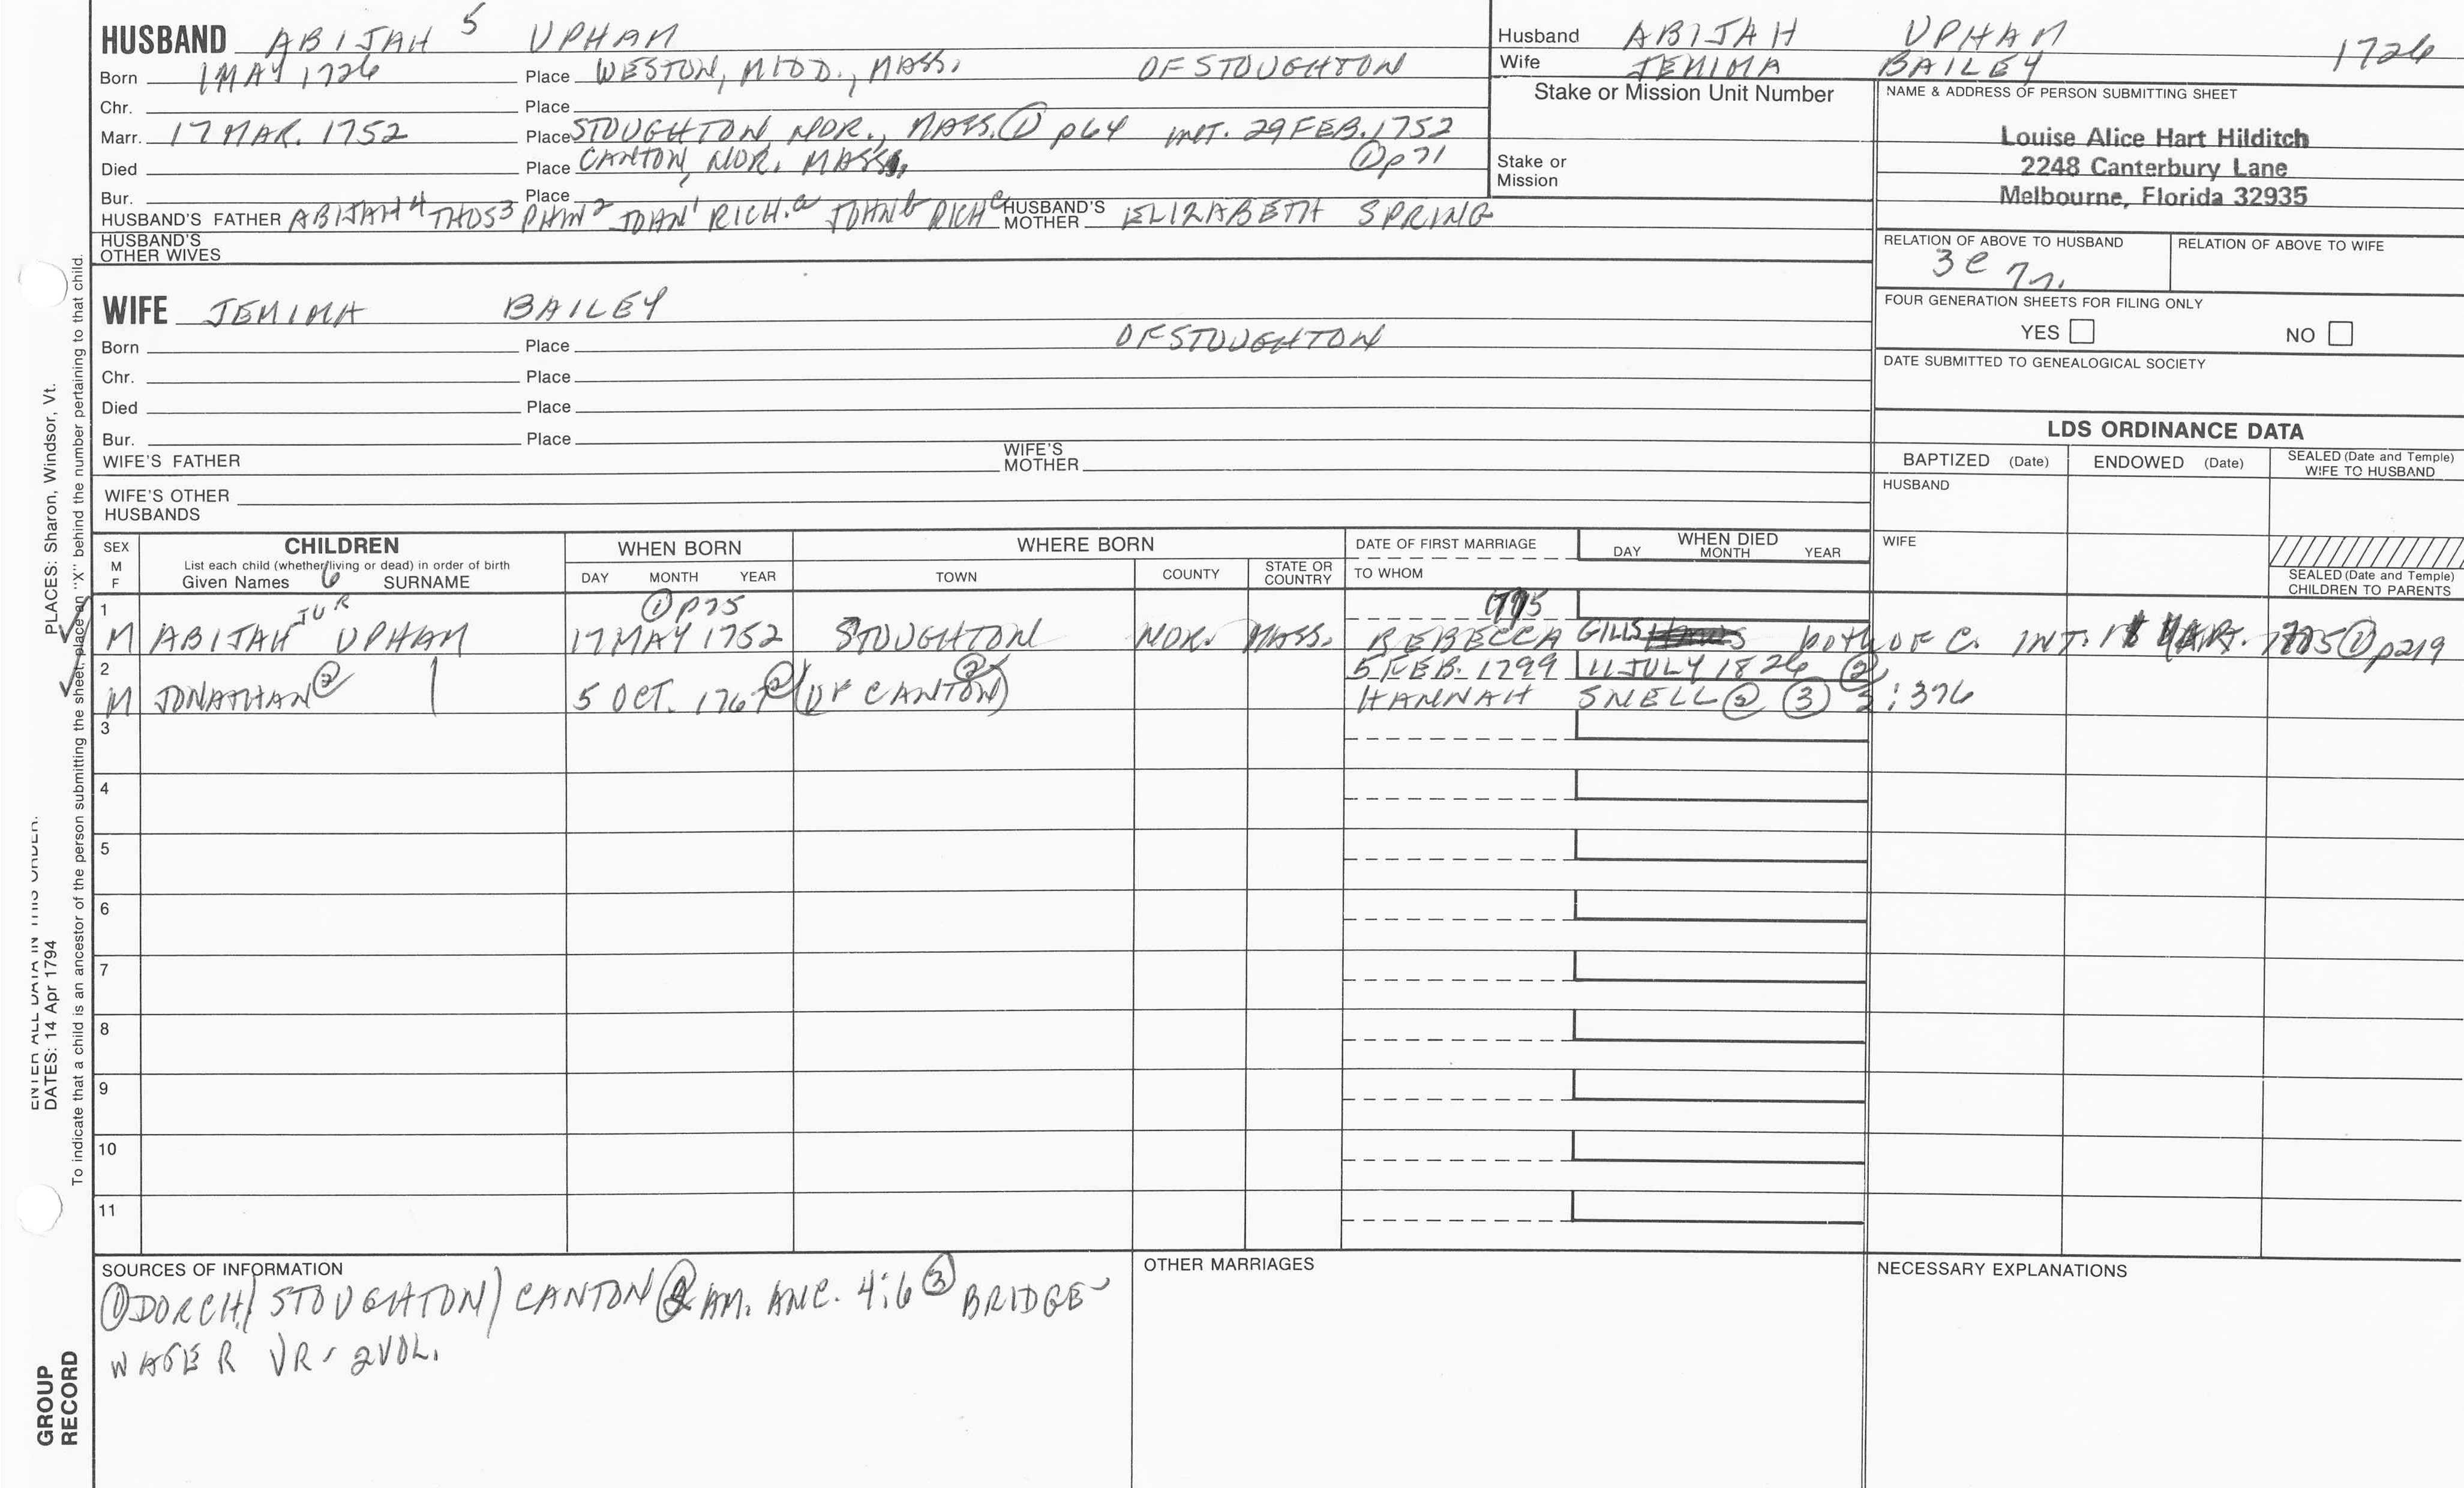 HUSBAND ABIJAH 5 UPHAM
Born 1 MAY 1726 Place WESTON, MIDD., MASS. OF STOUGHTON
Chr. Place
Marr. 17 MAR. 1752 Place STOUGHTON, NOR., MASS. ① p64 INT. 29 FEB. 1752
Died Place CANTON, NOR. MASS. ① p71
Bur. Place
HUSBAND'S FATHER ABIJAH 4 THOS 3 PHIN 2 JOHN 1 RICH. a JOHN b RICH c HUSBAND'S MOTHER ELIZABETH SPRING
HUSBAND'S OTHER WIVES
WIFE JEMIMA BAILEY
OF STOUGHTON
Born Place
Chr. Place
Died Place
Bur. Place
WIFE'S FATHER WIFE'S MOTHER
WIFE'S OTHER HUSBANDS
Husband ABIJAH UPHAM 1726
Wife JEMIMA BAILEY
Stake or Mission Unit Number
Stake or Mission
NAME & ADDRESS OF PERSON SUBMITTING SHEET
Louise Alice Hart Hilditch
2248 Canterbury Lane
Melbourne, Florida 32935
RELATION OF ABOVE TO HUSBAND RELATION OF ABOVE TO WIFE
3 C 7 r.
FOUR GENERATION SHEETS FOR FILING ONLY
YES NO
DATE SUBMITTED TO GENEALOGICAL SOCIETY
LDS ORDINANCE DATA
BAPTIZED (Date) ENDOWED (Date) SEALED (Date and Temple) WIFE TO HUSBAND
HUSBAND
WIFE
SEALED (Date and Temple) CHILDREN TO PARENTS
SEX M F
CHILDREN
List each child (whether living or dead) in order of birth
Given Names 6 SURNAME
WHEN BORN
DAY MONTH YEAR
WHERE BORN
TOWN COUNTY STATE OR COUNTRY
DATE OF FIRST MARRIAGE
TO WHOM
WHEN DIED
DAY MONTH YEAR
1 JUR ① p75 1775
M ABIJAH UPHAM 17 MAY 1752 STOUGHTON NOR. MASS. REBECCA GILLS both OF C. INT. MAR. ① p219
2 5 FEB. 1799 11 JULY 1826 ②
M JONATHAN ② 5 OCT. 1767 ② (OF CANTON) ② HANNAH SNELL ② ③ 2:376
3
4
5
6
7
8
9
10
11
SOURCES OF INFORMATION
① DORCH/ STOUGHTON/ CANTON ② AM. ANC. 4:6 ③ BRIDGE-
WATER VR - 2 VOL.
OTHER MARRIAGES
NECESSARY EXPLANATIONS
ENTER ALL DATA IN THIS ORDER:
DATES: 14 Apr 1794
PLACES: Sharon, Windsor, Vt.
To indicate that a child is an ancestor of the person submitting the sheet, place an "X" behind the number pertaining to that child.
GROUP
RECORD